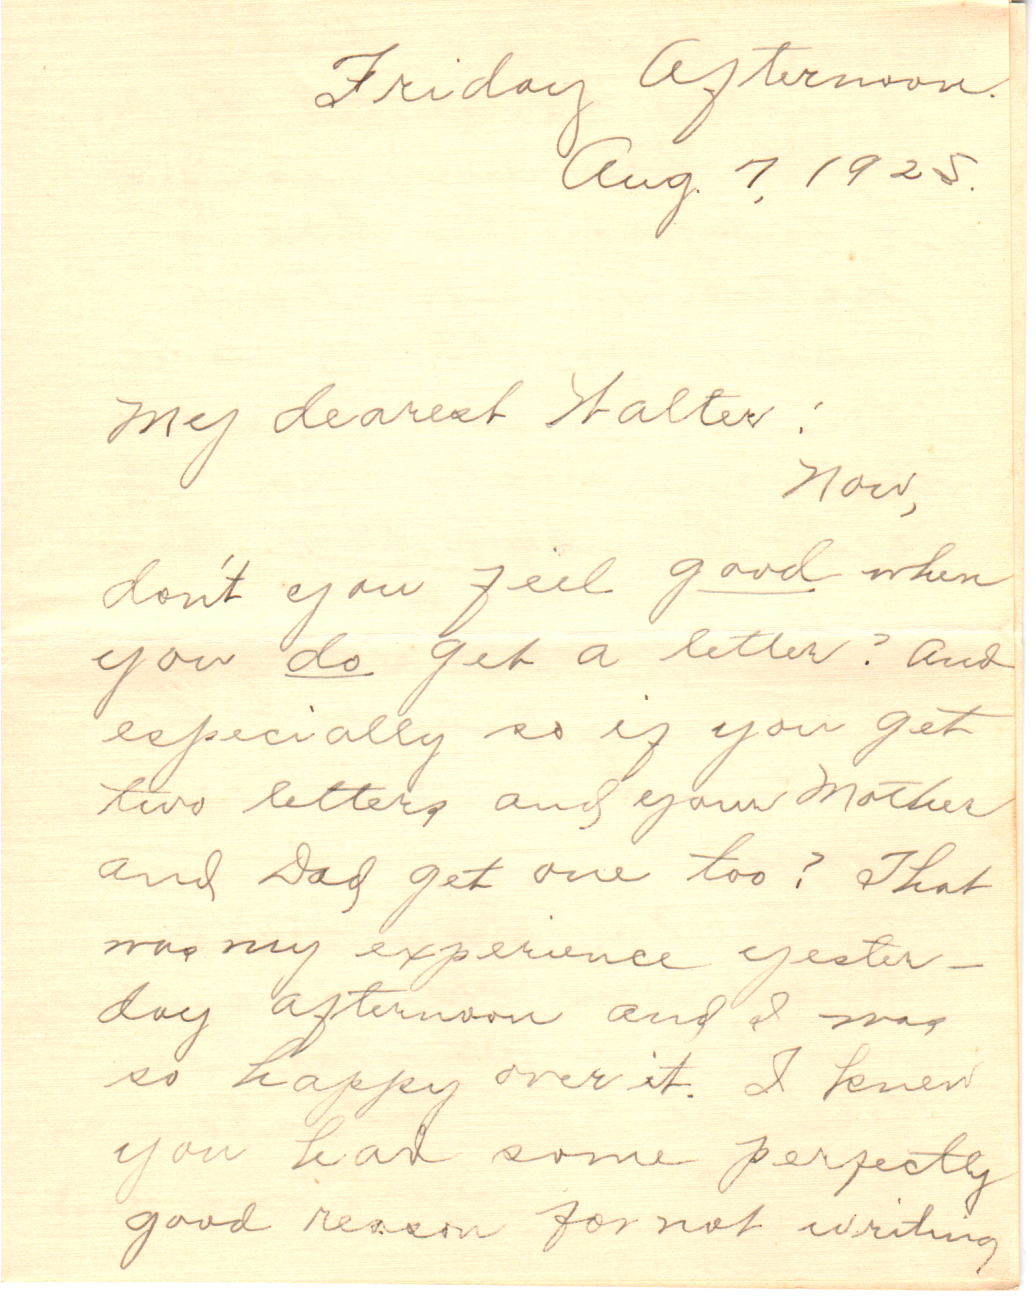 Friday Afternoon.
Aug. 7, 1925.
My dearest Walter:
Now,
don't you feel good when
you do get a letter? And
especially so if you get
two letters and your Mother
and Dad get one too? That
was my experience yester-
day afternoon and I was
so happy over it. I knew
you had some perfectly
good reason for not writing